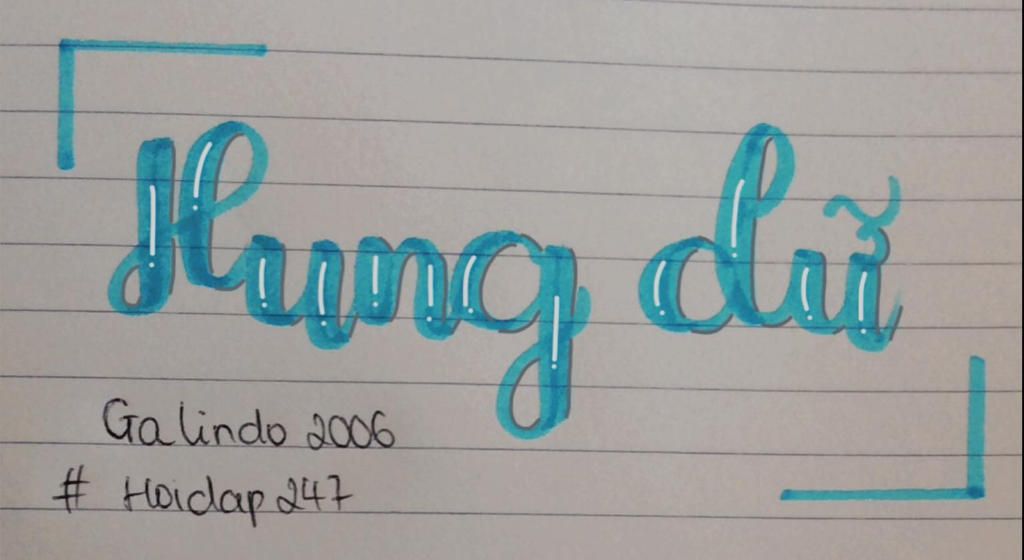 Hung dữ
Galindo 2006
# Hoidap 247